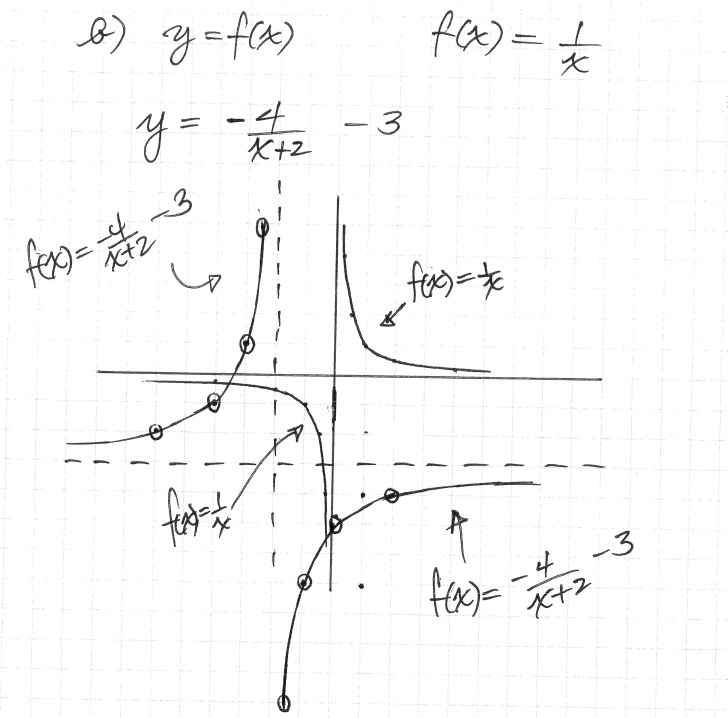 b) y = f(x) f(x) = 1/x
y = -4/(x+2) - 3
f(x) = 4/(x+2) - 3
f(x) = 1/x
f(x) = 1/x
f(x) = -4/(x+2) - 3